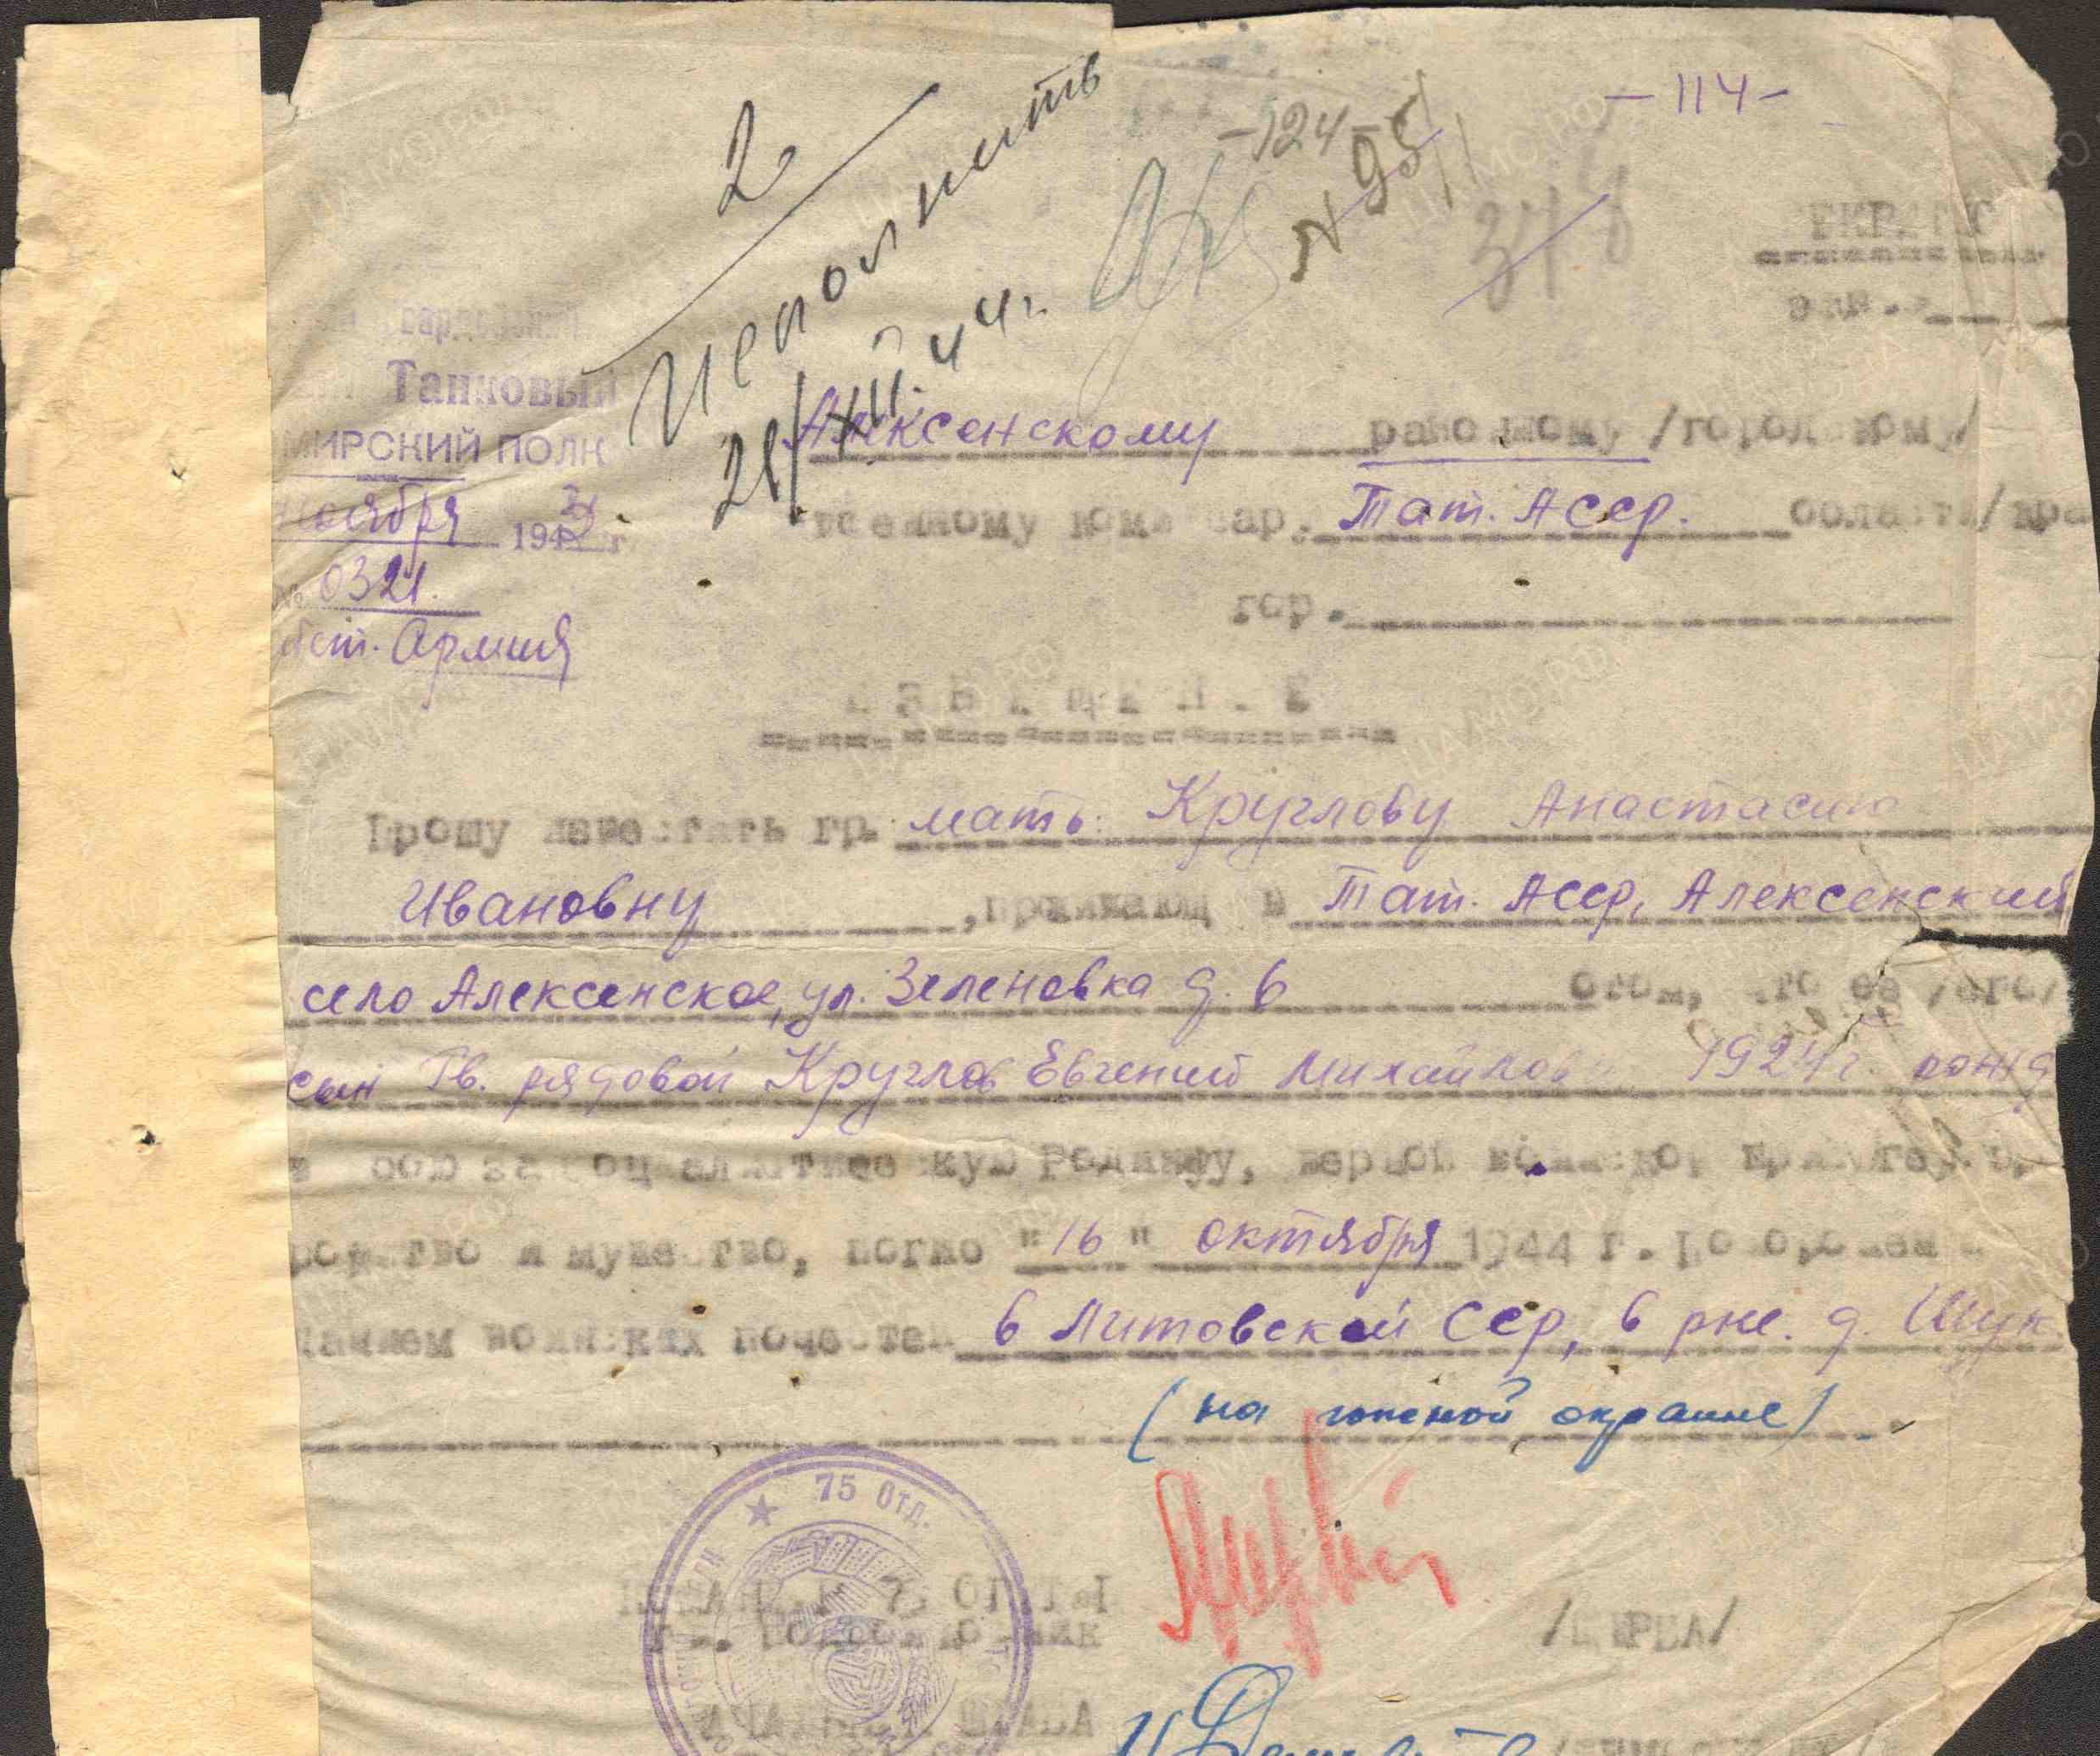 -114-
-124-
2
№ 95
Исполнить
Танковый
МИРСКИЙ ПОЛК
ноября 194 г
№ 0321.
Армия
28/XII.44г.
Алексенскому районному /городскому/
военному комиссар. Тат. Асср. области/кра
гор.
ИЗВЕЩЕНИЕ
Прошу известить гр. мать Круглову Анастасию
Ивановну, проживающ в Тат. Асср, Алексенский
село Алексенское, ул. Зеленовка д. 6 отом, что ее /его/
сын Гв. рядовой Круглов Евгений Михайлов 1924г. рожд
в бою за социалистическую Родину, верный воинской присяге,
геройство и мужество, погиб "16" октября 1944 г. Похоронен
данием воинских почестей в Литовской ССР, в рне. д. Шук.
(на южной окраине)
75 Отд.
КОМАНДИР 75 ОГТТП
ГВ. ПОДПОЛКОВНИК
НАЧАЛЬНИК ШТАБА